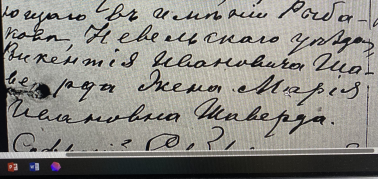 ющаго въ имѣніи Рыба-
ково, Невельскаго уѣзда,
Викентія Ивановича Ша-
верда Жена Марія
Ивановна Шаверда.